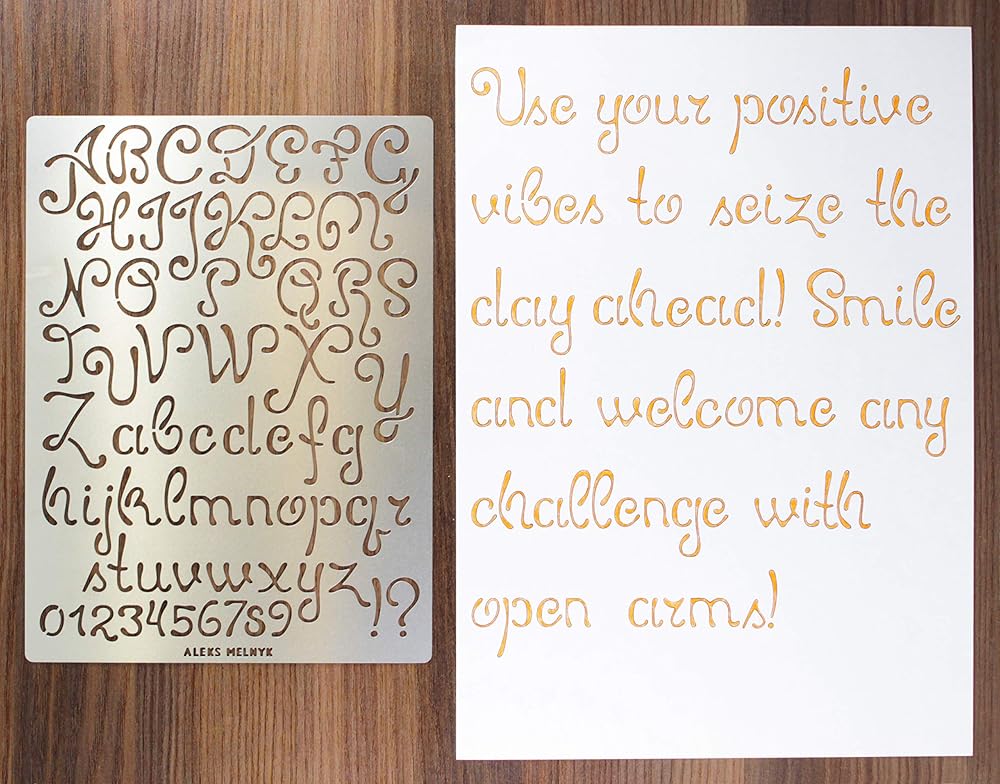 ABCDEFG
HIJKLM
NOPQRS
TUVWX
Y
Zabcdefg
hijklmnopqr
stuvwxyz
0123456789
!?
ALEKS MELNYK
Use your positive
vibes to seize the
day ahead! Smile
and welcome any
challenge with
open arms!